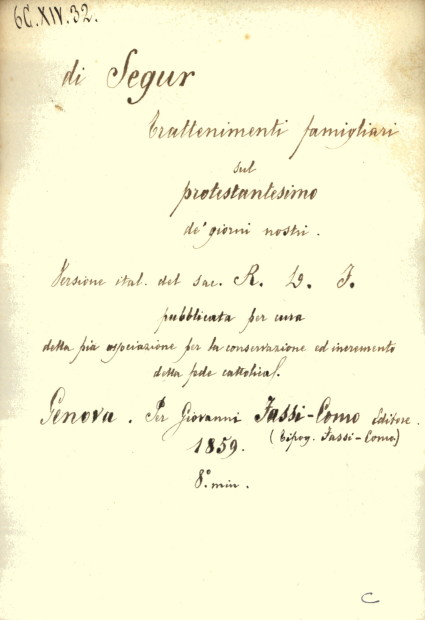 6C.XIV.32.
di Segur
Trattenimenti famigliari
sul
protestantesimo
de' giorni nostri.
Versione ital. del sac. R. D. F.
pubblicata per cura
della pia associazione per la conservazione ed incremento
della fede cattolica.
Genova. Per Giovanni Fassi-Como Editore.
1859. (Tipog. Fassi-Como)
8.° min.
C